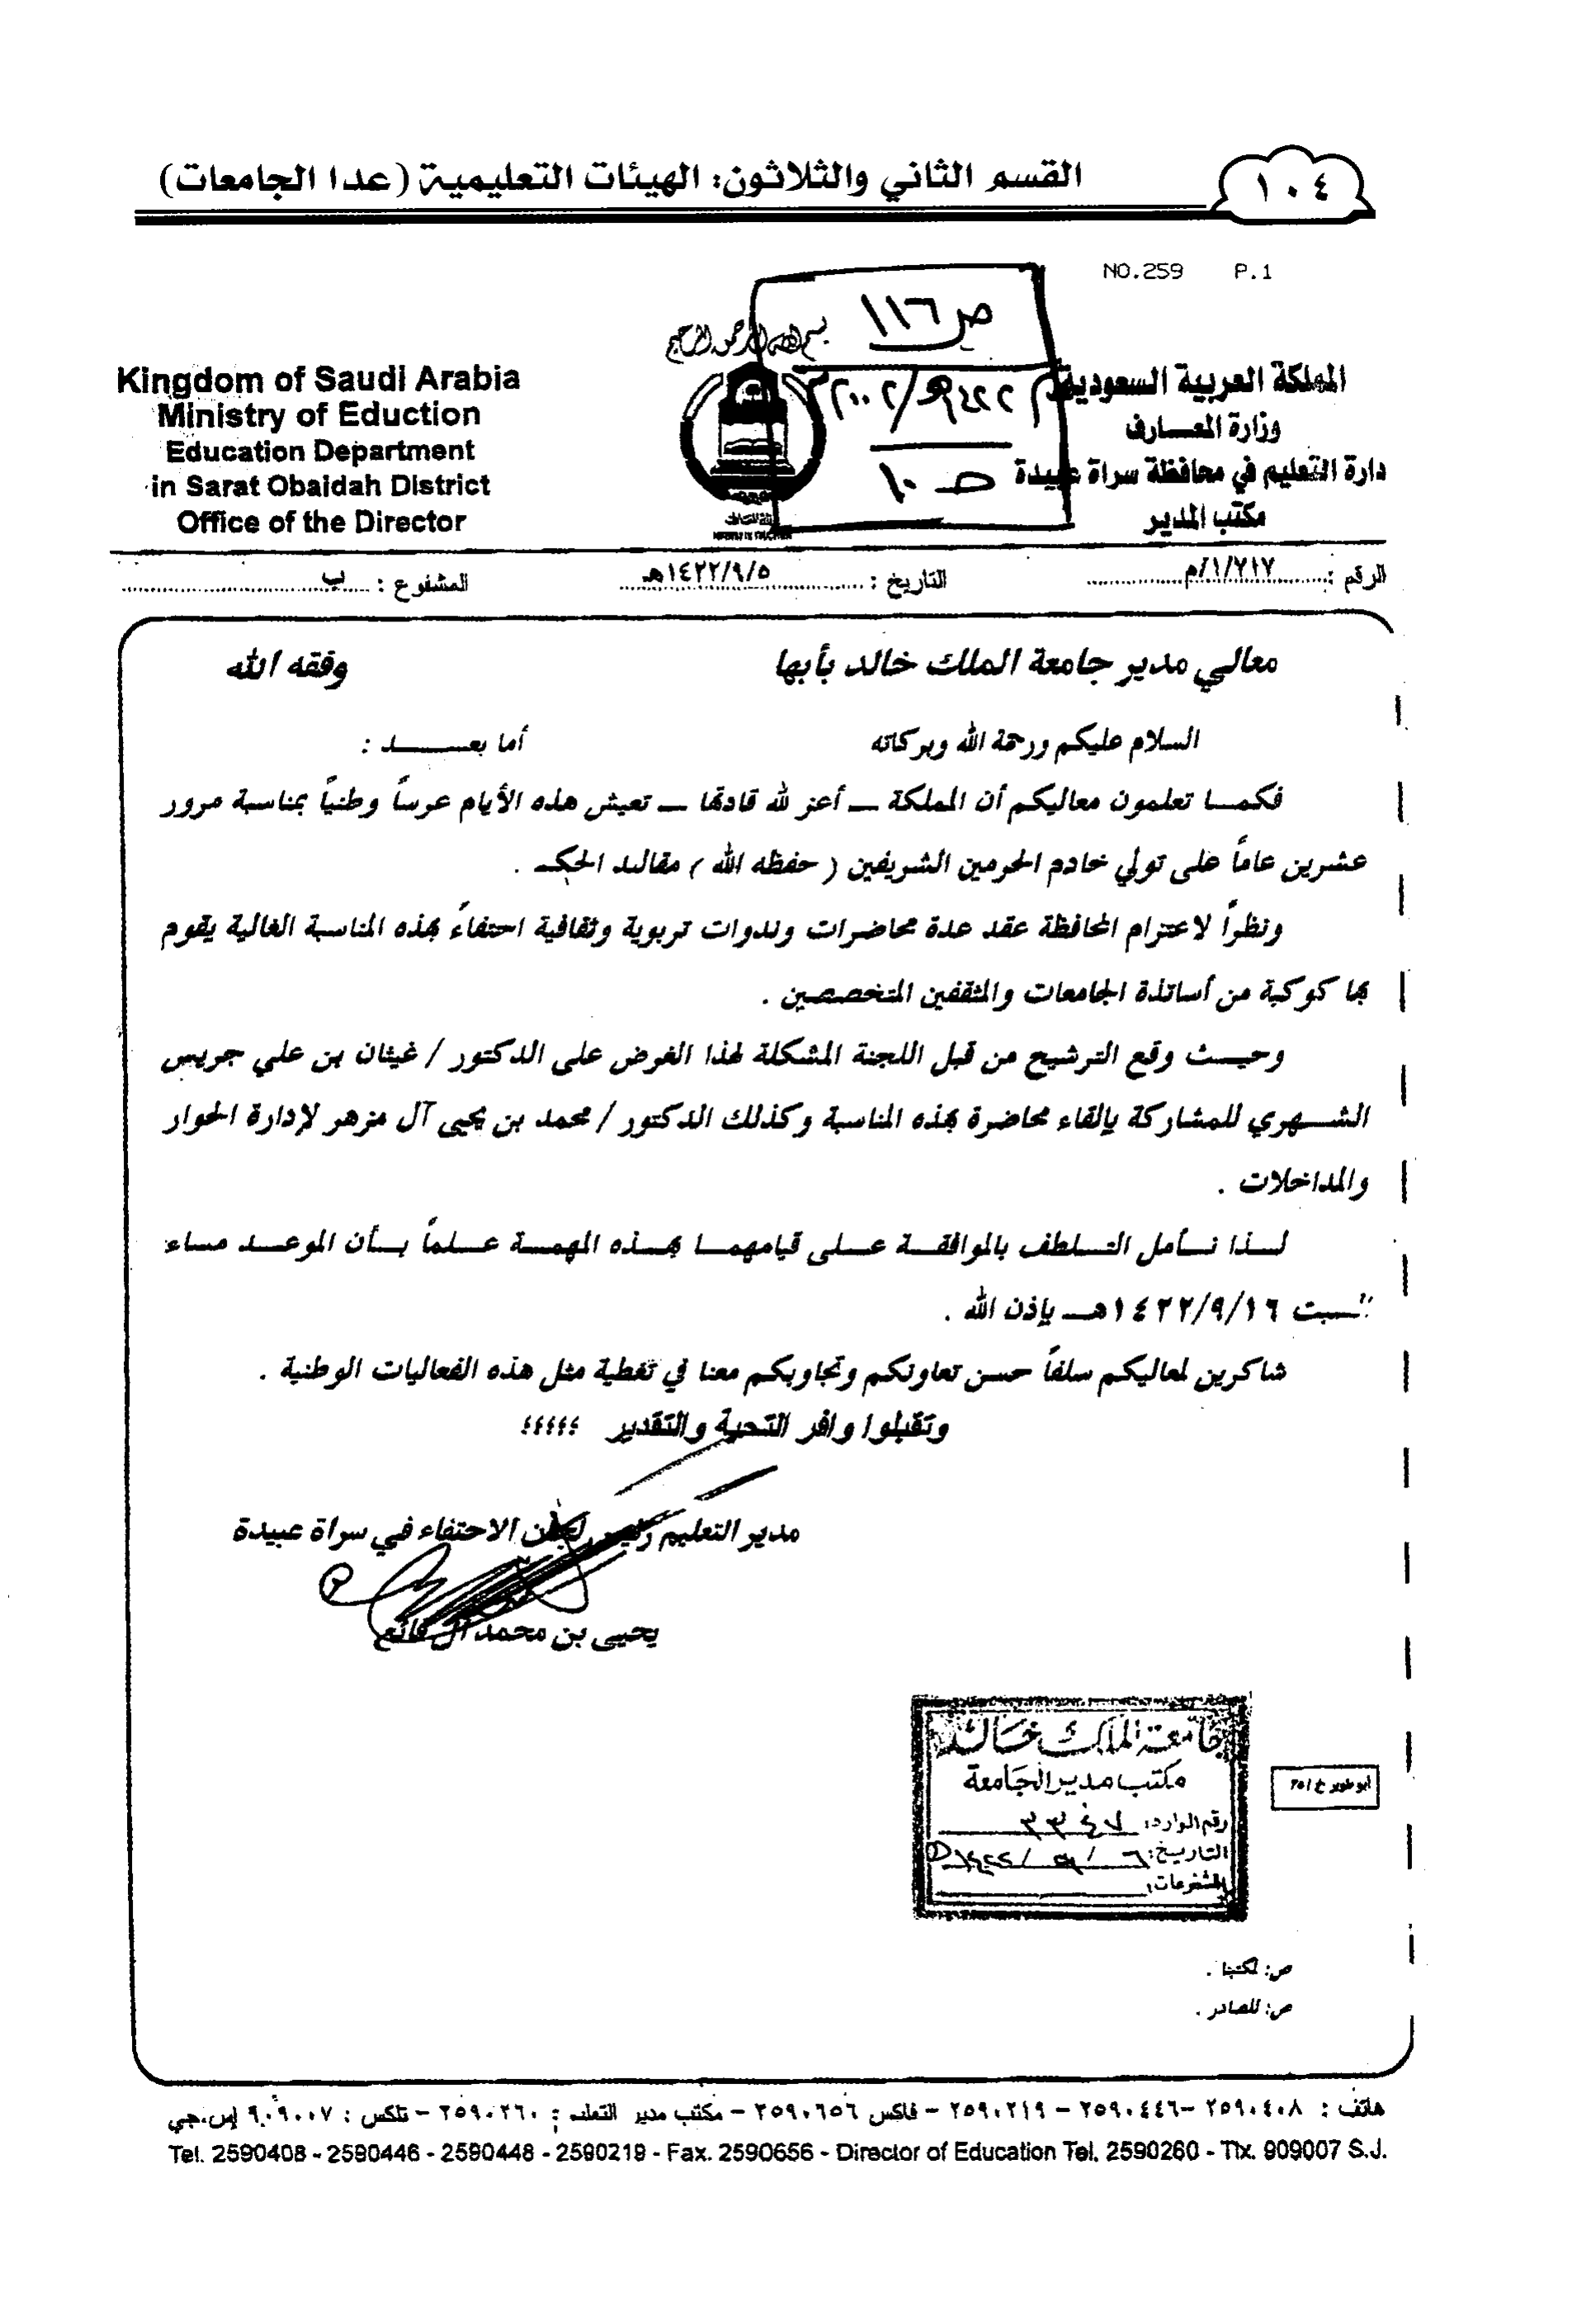 القسم الثاني والثلاثون: الهيئات التعليمية (عدا الجامعات)
١٠٤
NO.259 P.1
ص ١١٦
١٤٢٢هـ/٢٠٠٢م
ص ١٠
بسم الله الرحمن الرحيم
Kingdom of Saudi Arabia
Ministry of Eduction
Education Department
in Sarat Obaidah District
Office of the Director
المملكة العربية السعودية
وزارة المعارف
دارة التعليم في محافظة سراة عبيدة
مكتب المدير
الرقم : ١/٧١٧/م التاريخ : ١٤٢٢/٩/٥هـ المشفوع : ب
معالي مدير جامعة الملك خالد بأبها وفقه الله
السلام عليكم ورحمة الله وبركاته أما بعـــــد :
فكمـــا تعلمون معاليكم أن المملكة ــ أعز لله قادتها ــ تعيش هذه الأيام عرساً وطنياً بمناسبة مرور
عشرين عاماً على تولي خادم الحرمين الشريفين ( حفظه الله ) مقاليد الحكـ .
ونظراً لاعتزام المحافظة عقد عدة محاضرات وندوات تربوية وثقافية احتفاءً بهذه المناسبة الغالية يقوم
بها كوكبة من أساتذة الجامعات والمثقفين المتخصصين .
وحيـــث وقع الترشيح من قبل اللجنة المشكلة لهذا الغرض على الدكتور / غيثان بن علي جريس
الشـــهري للمشاركة بإلقاء محاضرة بهذه المناسبة وكذلك الدكتور / محمد بن يحيى آل مزهر لإدارة الحوار
والمداخلات .
لـــذا نـــأمل التـــلطف بالموافقـــة عـــلى قيامهمـــا بهـــذه المهمـــة عـــلماً بـــأن الموعـــد مســـاء
ـسبت ١٤٢٢/٩/١٦هـــ بإذن الله .
شاكرين لمعاليكم سلفاً حسن تعاونكم وتجاوبكم معنا في تغطية مثل هذه الفعاليات الوطنية .
وتقبلوا وافر التحية والتقدير ؛؛؛؛؛
مدير التعليم رئيس لجان الاحتفاء في سراة عبيدة
يحيى بن محمد آل فائع
جامعة الملك خالد
مكتب مدير الجامعة
رقم الوارد: ٣٣٤٧
التاريخ: ٦ / ٩ / ١٤٢٢
المشفوعات:
ص: لمكتبنا .
ص: للصادر .
هاتف : ٢٥٩٠٤٠٨ -٢٥٩٠٤٤٦ - ٢٥٩٠٢١٩ - فاكس ٢٥٩٠٦٥٦ - مكتب مدير التعليم : ٢٥٩٠٢٦٠ - تلكس : ٩٠٩٠٠٧ إس.جي
Tel. 2590408 - 2590446 - 2590448 - 2590219 - Fax. 2590656 - Director of Education Tel. 2590260 - Tlx. 909007 S.J.